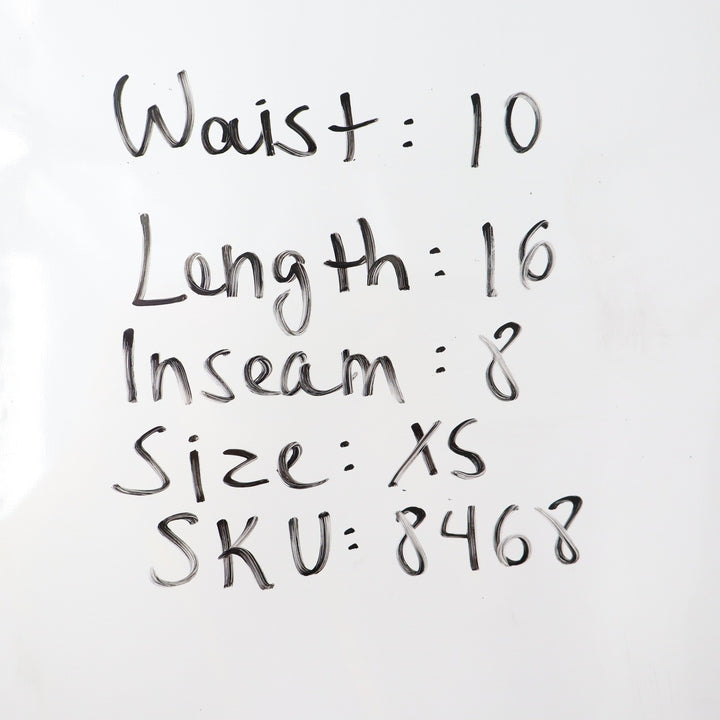 Waist: 10
Length: 16
Inseam: 8
Size: XS
SKU: 8468